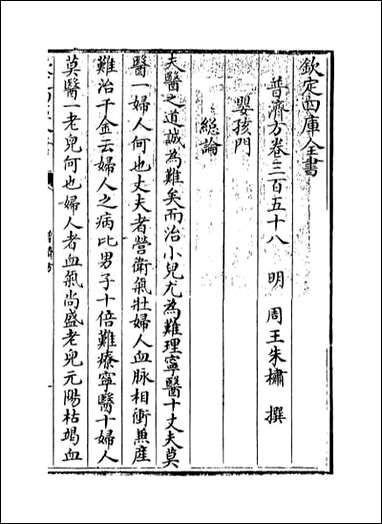 欽定四庫全書
普濟方卷三百五十八　明　周王朱橚　撰
嬰孩門
總論
夫醫之道誠為難矣而治小兒尤為難理寧醫十丈夫莫
醫一婦人何也丈夫者營衛氣壯婦人血脉相衝無産
難治千金云婦人之病比男子十倍難療寧醫十婦人
莫醫一老兒何也婦人者血氣尚盛老兒元陽枯竭血